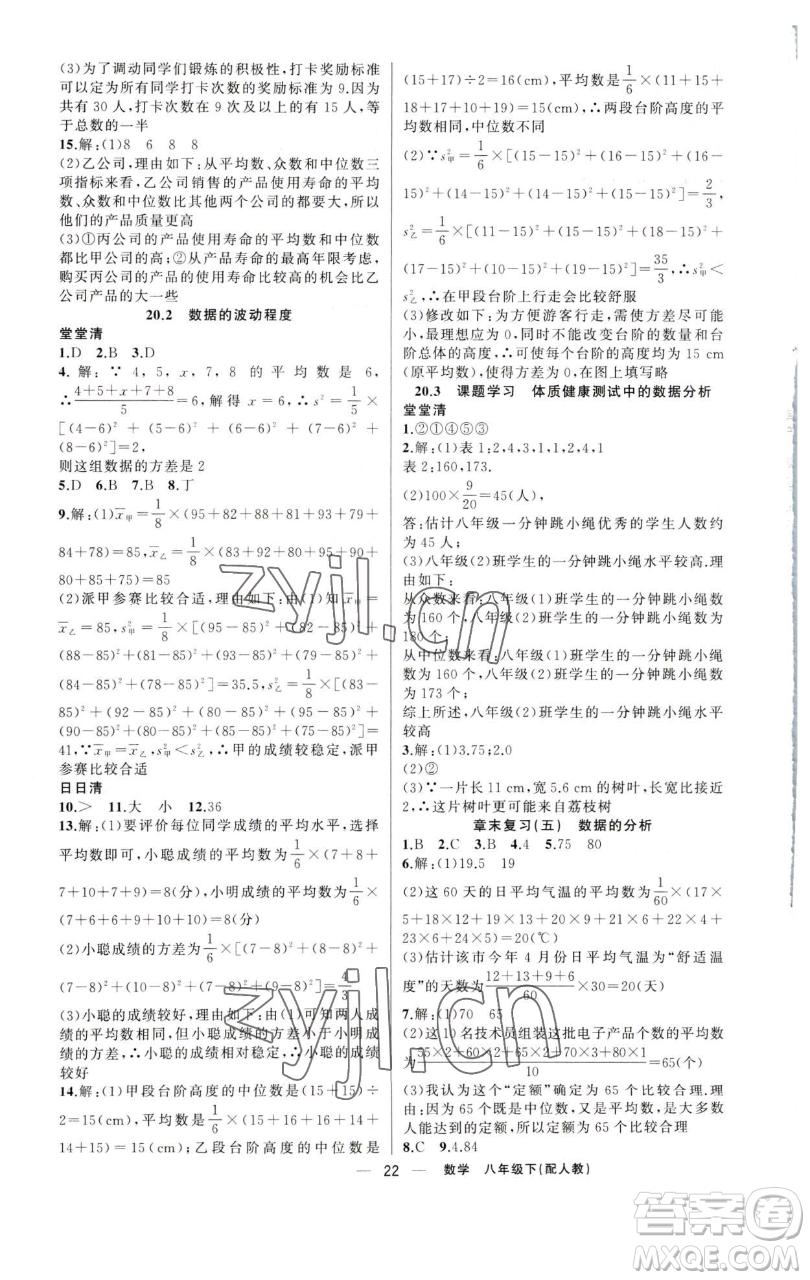 (3)为了调动同学们锻炼的积极性，打卡奖励标准
可以定为所有同学打卡次数的奖励标准为 9.因为
共有 30 人，打卡次数在 9 次及以上的有 15 人，等
于总数的一半
15.解：(1)8 6 8 8
(2)乙公司，理由如下：从平均数、众数和中位数三
项指标来看，乙公司销售的产品使用寿命的平均
数、众数和中位数比其他两个公司的都要大，所以
他们的产品质量更高
(3)①丙公司的产品使用寿命的平均数和中位数
都比甲公司的高；②从产品寿命的最高年限考虑，
购买丙公司的产品的使用寿命比较高的机会比乙
公司产品的大一些
20.2 数据的波动程度
堂堂清
1.D 2.B 3.D
4.解：∵ 4，5，x，7，8 的平均数是 6，
∴(4+5+x+7+8)/5=6，解得 x=6，∴s²=1/5×
[(4-6)²+(5-6)²+(6-6)²+(7-6)²+
(8-6)²]=2，
则这组数据的方差是 2
5.D 6.B 7.B 8.丁
9.解：(1)x̄甲=1/8×(95+82+88+81+93+79+
84+78)=85，x̄乙=1/8×(83+92+80+95+90+
80+85+75)=85
(2)派甲参赛比较合适，理由如下：由(1)知 x̄甲=
x̄乙=85，s²甲=1/8×[(95-85)²+(82-85)²+
(88-85)²+(81-85)²+(93-85)²+(79-85)²
+(84-85)²+(78-85)²]=35.5，s²乙=1/8×[(83-
85)²+(92-85)²+(80-85)²+(95-85)²+
(90-85)²+(80-85)²+(85-85)²+(75-85)²]=
41，∵x̄甲=x̄乙，s²甲<s²乙，∴甲的成绩较稳定，派甲
参赛比较合适
日日清
10.＞ 11.大 小 12.36
13.解：(1)要评价每位同学成绩的平均水平，选择
平均数即可，小聪成绩的平均数为1/6×(7+8+
7+10+7+9)=8(分)，小明成绩的平均数为1/6
×(7+6+6+9+10+10)=8(分)
(2)小聪成绩的方差为1/6×[(7-8)²+(8-8)²+
(7-8)²+(10-8)²+(7-8)²+(9-8)²]=4/3
(3)小聪的成绩较好，理由：由(1)可知两人成
绩的平均数相同，但小聪成绩的方差小于小明成
绩的方差，成绩相对稳定，故小聪的成绩比
较好
14.解：(1)甲段台阶高度的中位数是(15+15)÷
2=15(cm)，平均数是1/6×(15+16+16+14+
14+15)=15(cm)；乙段台阶高度的中位数是
(15+17)÷2=16(cm)，平均数是1/6×(11+15+
18+17+10+19)=15(cm)，∴两段台阶高度的平
均数相同，中位数不同
(2)∵s²甲=1/6×[(15-15)²+(16-15)²+(16-
15)²+(14-15)²+(14-15)²+(15-15)²]=2/3，
s²乙=1/6×[(11-15)²+(15-15)²+(18-15)²+
(17-15)²+(10-15)²+(19-15)²]=35/3，∴s²甲<
s²乙，∴在甲段台阶上行走会比较舒服
(3)修改如下：为方便游客行走，需使方差尽可能
小，最理想应为 0，同时不能改变台阶数量和台阶
台阶总体的高度，故可使每个台阶高度均为 15 cm
(原平均数)，使得方差为 0，在图上填写略
20.3 课题学习 体质健康测试中的数据分析
堂堂清
1.②①④⑤③
2.解：(1)表 1：7,4,3,1,1,2,4,1
表 2：160,173.
(2)100×9/20=45(人)，
答：估计八年级一分钟跳小绳优秀的学生人数约
为 45 人；
(3)八年级(2)班学生的一分钟跳小绳水平较高.理
由如下：
从众数来看：八年级(1)班学生的一分钟跳小绳众
数为 160 个，八年级(2)班学生的一分钟跳小绳数为
180 个；
从中位数来看：八年级(1)班学生的一分钟跳小绳
数为 160 个，八年级(2)班学生的一分钟跳小绳
数为 173 个；
综上所述，八年级(2)班学生的一分钟跳小绳水平
较高
3.解：(1)3.75；2.0
(2)②
(3)∵一片长 11 cm，宽 5.6 cm 的树叶，长宽比接近
2，∴这片树叶更可能来自荔枝树
章末复习(五) 数据的分析
1.B 2.C 3.B 4.4 5.75 80
6.解：(1)19.5 19
(2)这 60 天的日平均气温的平均数为1/60×(17×
5+18×12+19×13+20×9+21×6+22×4+
23×6+24×5)=20(℃)
(3)估计该市今年 4 月份日平均气温为“舒适温
度”的天数为(12+13+9+6)/60×30=20(天)
7.解：(1)70 65
(2)这 10 名技术员组装这批电子产品个数的平均数
为(55×2+60×2+65×2+70×3+80×1)/10=65(个)
(3)我认为这个“定额”为 65 个比较合理.理
由：因为 65 个既是中位数，又是平均数，多数
人能完成，所以“定额”为 65 个比较合理
8.C 9.4.84
22 数学 八年级下(配人教)
zyjl.cn
zyjl.cn
答案圈
MXQE.COM